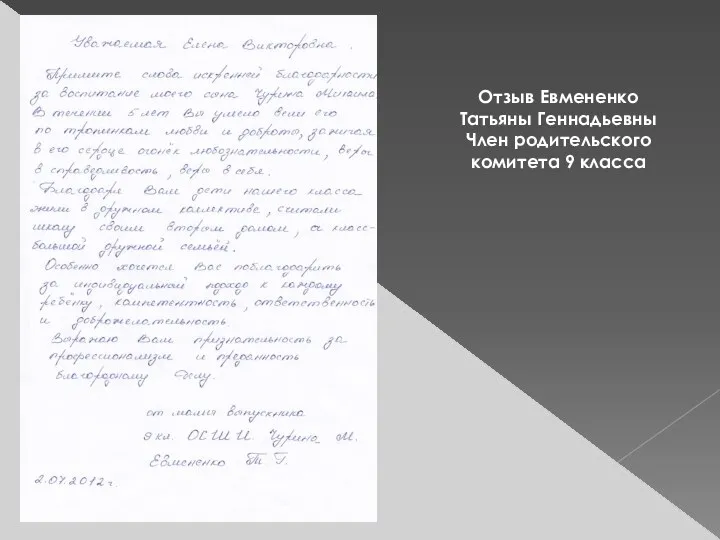 Уважаемая Елена Викторовна.
Примите слова искренней благодарности
за воспитание моего сына Чурина Михаила
В течении 5 лет Вы умело вели его
по тропинкам любви и доброты, зажигая
в его сердце огонёк любознательности, веры
в справедливость, веры в себя.
Благодаря Вам дети нашего класса
жили в дружном коллективе, считали
школу своим вторым домом, а класс-
большой дружной семьёй.
Особенно хочется Вас поблагодарить
за индивидуальный подход к каждому
ребёнку, компетентность, ответственность
и доброжелательность
Выражаю Вам признательность за
профессионализм и преданность
благородному делу.
от мамы выпускника
9 кл. ОСШИ Чурина М.
Евмененко Т Г.
2.07.2012 г
Отзыв Евмененко
Татьяны Геннадьевны
Член родительского
комитета 9 класса